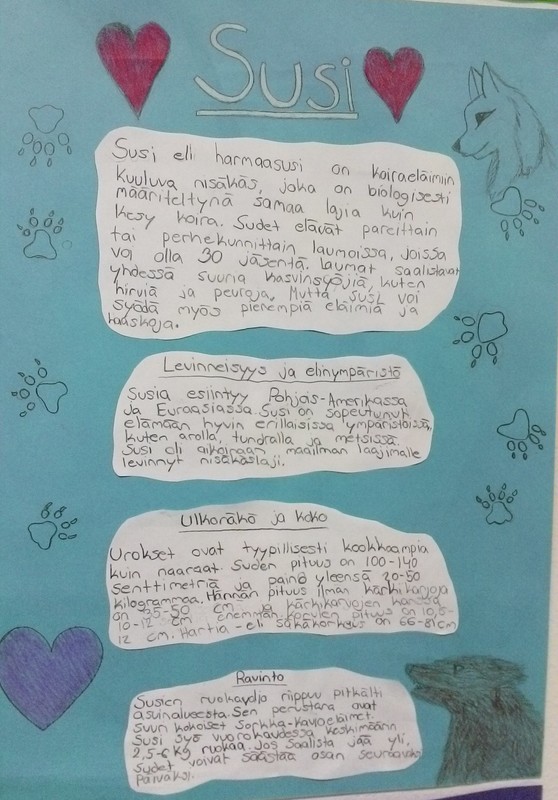 Susi
Susi eli harmaasusi on koiraeläimiin
kuuluva nisäkäs, joka on biologisesti
määriteltynä samaa lajia kuin
kesy koira. Sudet elävät pareittain
tai perhekunnittain laumoissa, joissa
voi olla 30 jäsentä. Laumat saalistavat
yhdessä suuria kasvinsyöjiä, kuten
hirviä ja peuroja. Mutta susi voi
syödä myös pienempiä eläimiä ja
haaskoja.
Levinneisyys ja elinympäristö
Susia esiintyy Pohjois-Amerikassa
ja Euraasiassa. Susi on sopeutunut
elämään hyvin erillaisissa ympäristöissä,
kuten arolla, tundralla ja metsissä.
Susi oli aikoinaan maailman laajimalle
levinnyt nisäkäslaji.
Ulkonäkö ja koko
Urokset ovat tyypillisesti kookkaampia
kuin naaraat. Suden pituus on 100-140
senttimetriä ja paino yleensä 20-50
kilogrammaa. Hännän pituus ilman kärkikarvoja
on 25-50 cm ja kärkikarvojen kanssa
10-12 cm enemmän. Korvien pituus on 10,5-
12 cm. Hartia- eli säkäkorkeus on 66-81cm
Ravinto
Susien ruokavalio riippuu pitkälti
asuinalueesta. Sen perustana ovat
suuri kokoiset sorkka-
Susi syö vuorokaudessa keskimäärin
2,5-6 kg ruokaa. Jos saalista jää yli,
sudet voivat säästää osan seuraavaks
päiväksi.